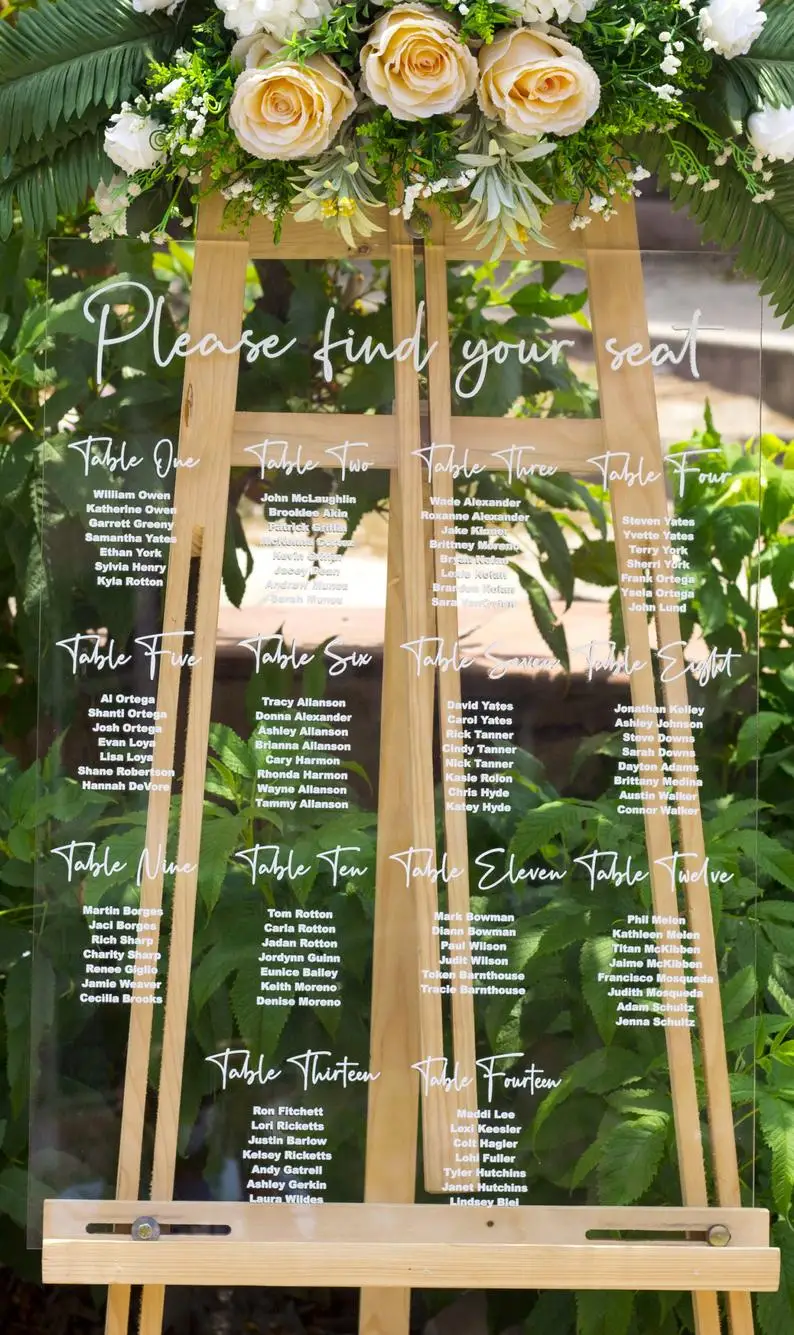 Please find your seat
Table One
William Owen
Katherine Owen
Garrett Greeny
Samantha Yates
Ethan York
Sylvia Henry
Kyla Rotton
Table Two
John McLaughlin
Brooklee Akin
Patrick Griffin
Kevin
Jacey Dean
Andrew Munoz
Sarah Munoz
Table Three
Wade Alexander
Roxanne Alexander
Jake Kinner
Brittney Moreno
Bryan Nolan
Lexie Nolan
Brandon Nolan
Sara
Table Four
Steven Yates
Yvette Yates
Terry York
Sherri York
Frank Ortega
Ysela Ortega
John Lund
Table Five
Al Ortega
Shanti Ortega
Josh Ortega
Evan Loya
Lisa Loya
Shane Robertson
Hannah DeVore
Table Six
Tracy Allanson
Donna Alexander
Ashley Allanson
Brianna Allanson
Cary Harmon
Rhonda Harmon
Wayne Allanson
Tammy Allanson
Table Seven
David Yates
Carol Yates
Rick Tanner
Cindy Tanner
Nick Tanner
Kasie Rolon
Chris Hyde
Katey Hyde
Table Eight
Jonathan Kelley
Ashley Johnson
Steve Downs
Sarah Downs
Dayton Adams
Brittany Medina
Austin Walker
Connor Walker
Table Nine
Martin Borges
Jaci Borges
Rich Sharp
Charity Sharp
Renee Giglio
Jamie Weaver
Cecilia Brooks
Table Ten
Tom Rotton
Carla Rotton
Jadan Rotton
Jordynn Guinn
Eunice Bailey
Keith Moreno
Denise Moreno
Table Eleven
Mark Bowman
Diann Bowman
Paul Wilson
Judit Wilson
Token Barnthouse
Tracie Barnthouse
Table Twelve
Phil Melen
Kathleen Melen
Titan McKibben
Jaime McKibben
Francisco Mosqueda
Judith Mosqueda
Adam Schultz
Jenna Schultz
Table Thirteen
Ron Fitchett
Lori Ricketts
Justin Barlow
Kelsey Ricketts
Andy Gatrell
Ashley Gerkin
Laura Wildes
Table Fourteen
Maddi Lee
Lexi Keesler
Colt Hagler
Lohi Fuller
Tyler Hutchins
Janet Hutchins
Lindsey Biel